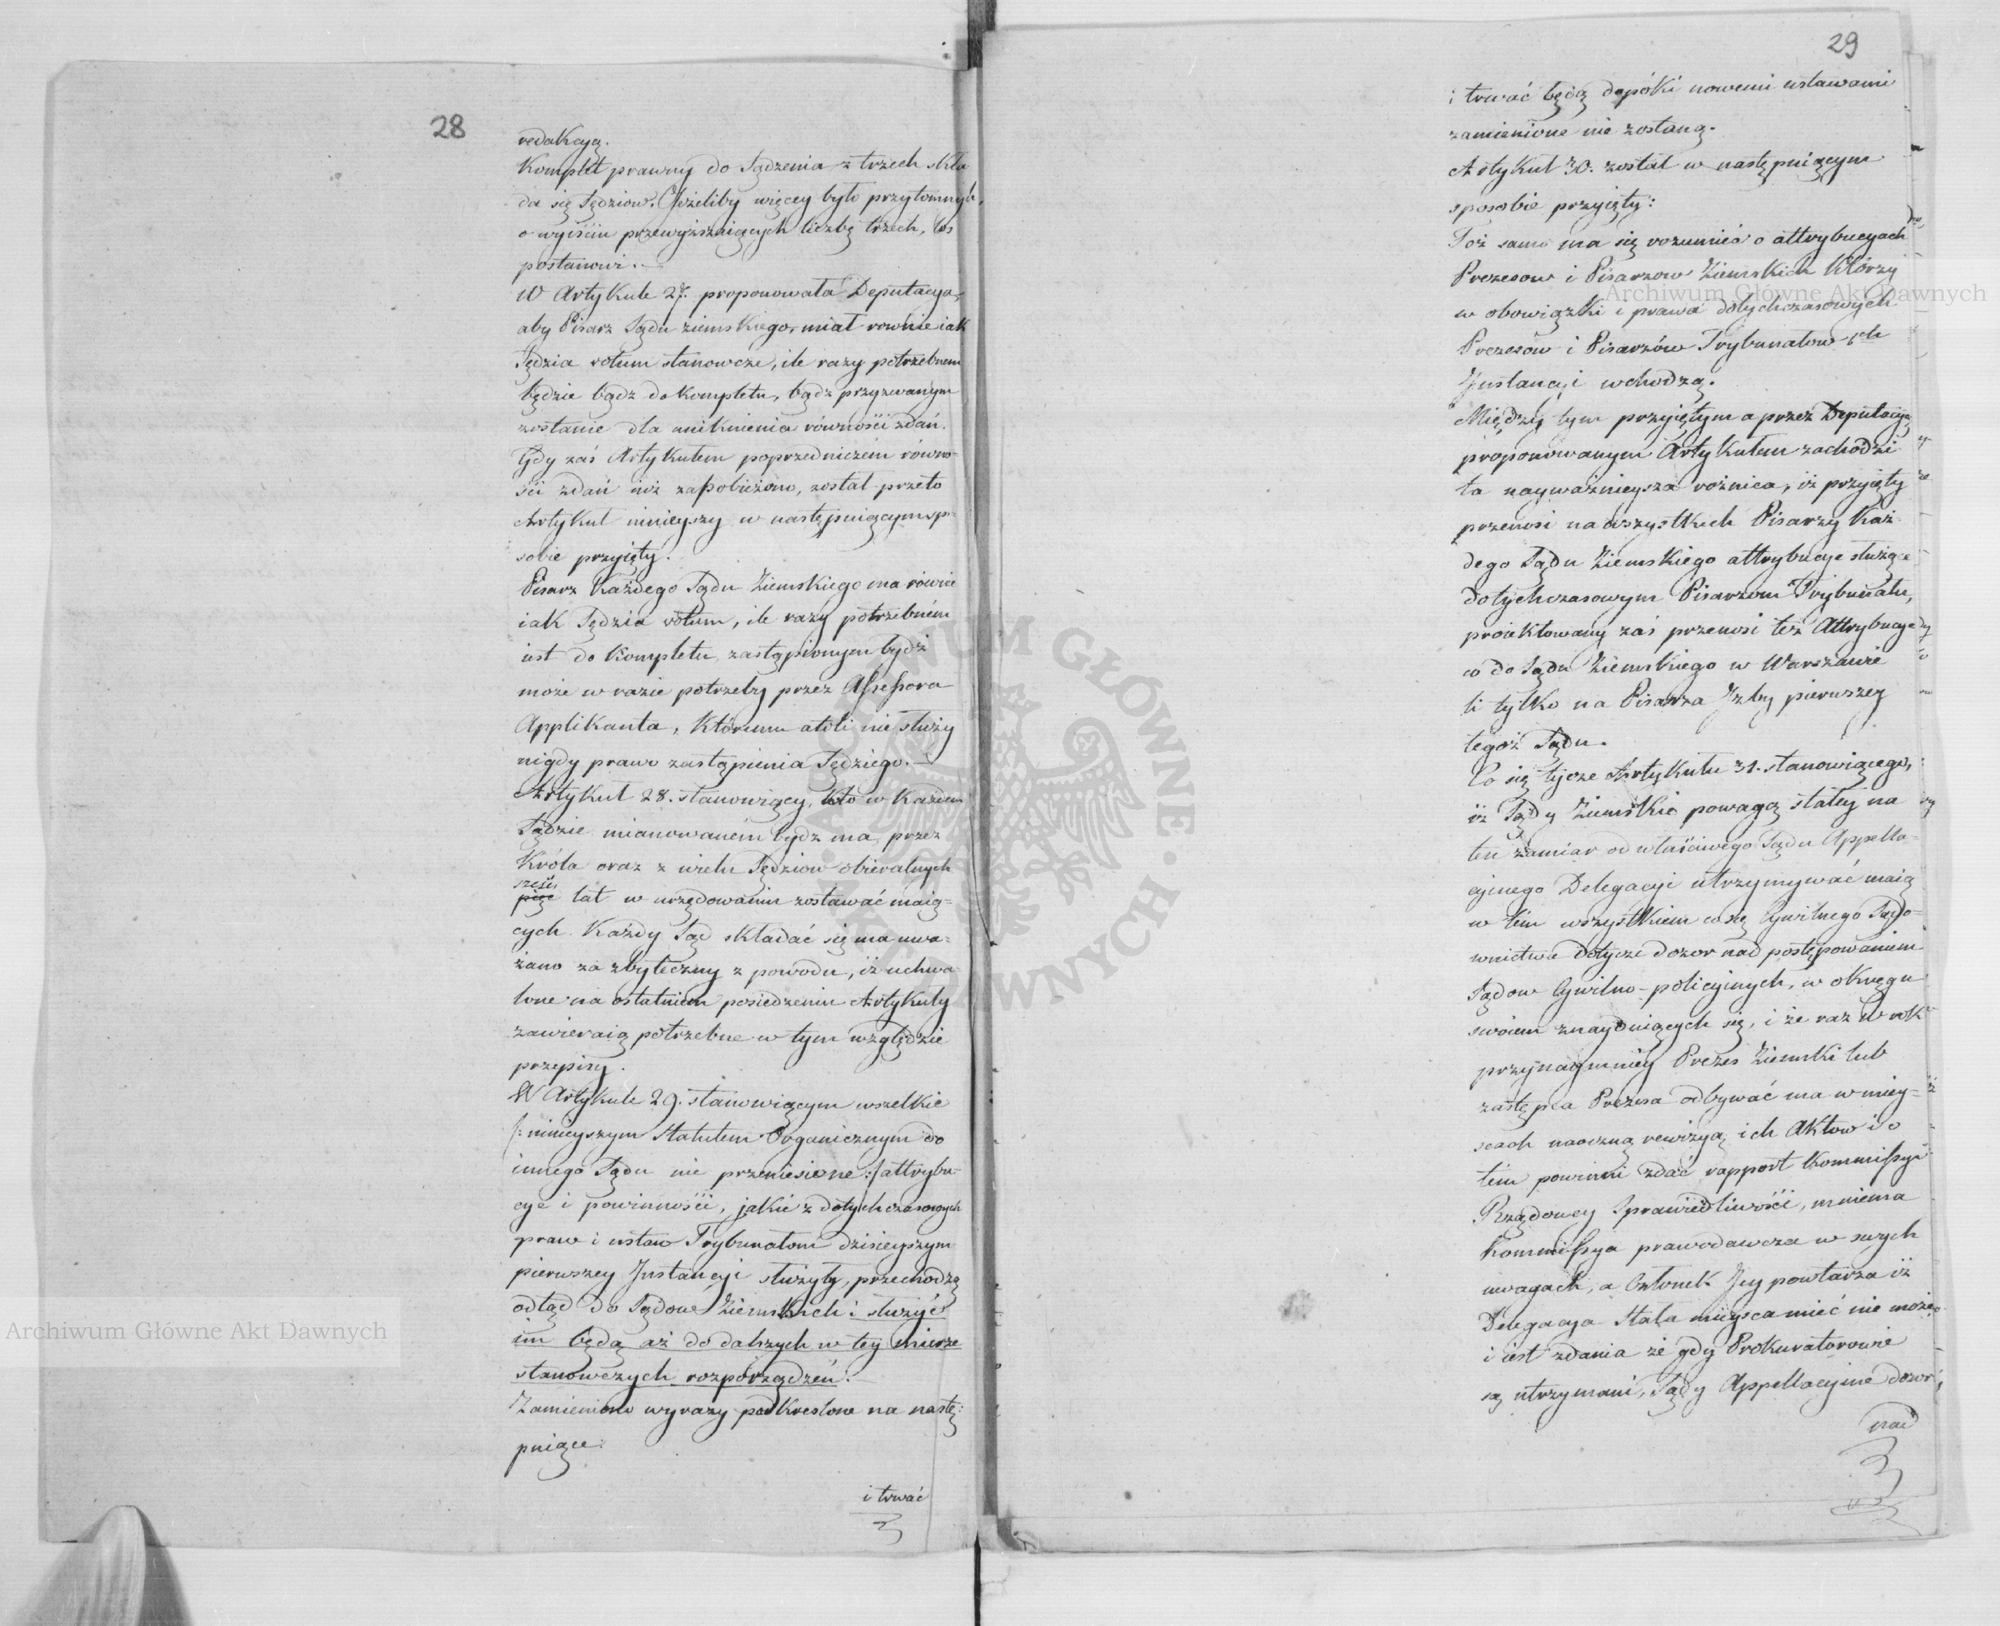 28
redakcyą.
Komplet prawny do Sądzenia z trzech skła
da się Sędziow. Jeżeliby więcey było przytomnych,
o wyiściu przewyższaiących liczbę trzech, los
postanowi.
W Artykule 27. proponowała Deputacya,
aby Pisarz Sądu ziemskiego, miał rownie iak
Sędzia votum stanowcze, ile razy potrzebnem
będzie bądz do kompletu, bądz przyzwanym
zostanie dla uniknienia równości zdań.
Gdy zaś Artykułem poprzedniczem równo-
ści zdań iuż zapobieżono, został przeto
Artykuł ninieyszy w następuiącym spo-
sobie przyięty.
Pisarz Każdego Sądu Ziemskiego ma równie
iak Sędzia votum, ile razy potrzebném
iest do Kompletu, zastąpionym bydź
może w razie potrzeby przez Assessora
Applikanta, któremu atoli nie służy
nigdy prawo zastąpienia Sędziego.
Artykuł 28. stanowiący, kto w Każdem
Sądzie mianowaném bydz ma przez
Króla oraz z wielu Sędziow obieralnych
sześć
pięć lat w urzędowaniu zostawać maią=
cych Każdy Sąd składać się ma uwa-
żano za zbyteczny z powodu, iż uchwa-
lone na ostatniem posiedzeniu Artykuły
zawieraią potrzebne w tym względzie
przepisy.
W Artykule 29. stanowiącym wszelkie
/: ninieyszym Statutem Organicznym do
innego Sądu nie przeniesione :/ attrybu-
cye i powinności, jakie z dotychczasowych
praw i ustaw Trybunałom dzisieyszym
pierwszey Instancyi służyły, przechodzą
odtąd do Sądow Ziemskich i służyć
im będą aż do dalszych w tey mierze
stanowczych rozporządzeń.
Zamieniono wyrazy podkreślone na nastę:
puiące
i trwać
29
i trwać będą dopóki nowemi ustawami
zamienione nie zostaną.
Artykuł 30. został w następuiącym
sposobie przyięty:
Toż samo ma się rozumieć o attrybucyach
Prezesow i Pisarzow Ziemskich którzy
w obowiązki i prawa dotychczasowych
Prezesow i Pisarzów Trybunałow 1ch
Instancyi wchodzą.
Między tym przyiętym a przez Deputacyą
proponowanym Artykułem zachodzi
ta nayważnieysza rożnica, iż przyięty
przenosi na wszystkich Pisarzy Każ-
dego Sądu Ziemskiego attrybucye służące
dotychczasowym Pisarzom Trybunału,
proiektowany zaś przenosi też Attrybucye
co do Sądu Ziemskiego w Warszawie
li tylko na Pisarza Izby pierwszey
tegoż Sądu.
Co się tycze Artykułu 31. stanowiącego,
iż Sądy Ziemskie powagą stałey na
ten zamiar od właściwego Sądu Appella-
cyinego Delegacyi utrzymywać maią
w tém wszystkiem co się Cywilnego Sądo-
wnictwa dotycze dozor nad postępowaniem
Sądow Cywilno-policyinych, w okręgu
swoiem znayduiących się, i że raz w rok
przynaymniey Prezes Ziemski lub
zastępca Prezesa odbywać ma w miey=
scach naoczną rewizyą ich Aktow i o
tém powinni zdać rapport Kommissyi
Rządowey Sprawiedliwości, mniema
Kommissya prawodawcza w swych
uwagach, a Członek Jey powtarza iż
Delegacya Stała mieysca mieć nie może
i iest zdania że gdy Prokuratorowie
są utrzymani, Sądy Appellacyine dozor
nad
Archiwum Główne Akt Dawnych
Archiwum Główne Akt Dawnych
ARCHIWUM GŁÓWNE · AKT DAWNYCH ·